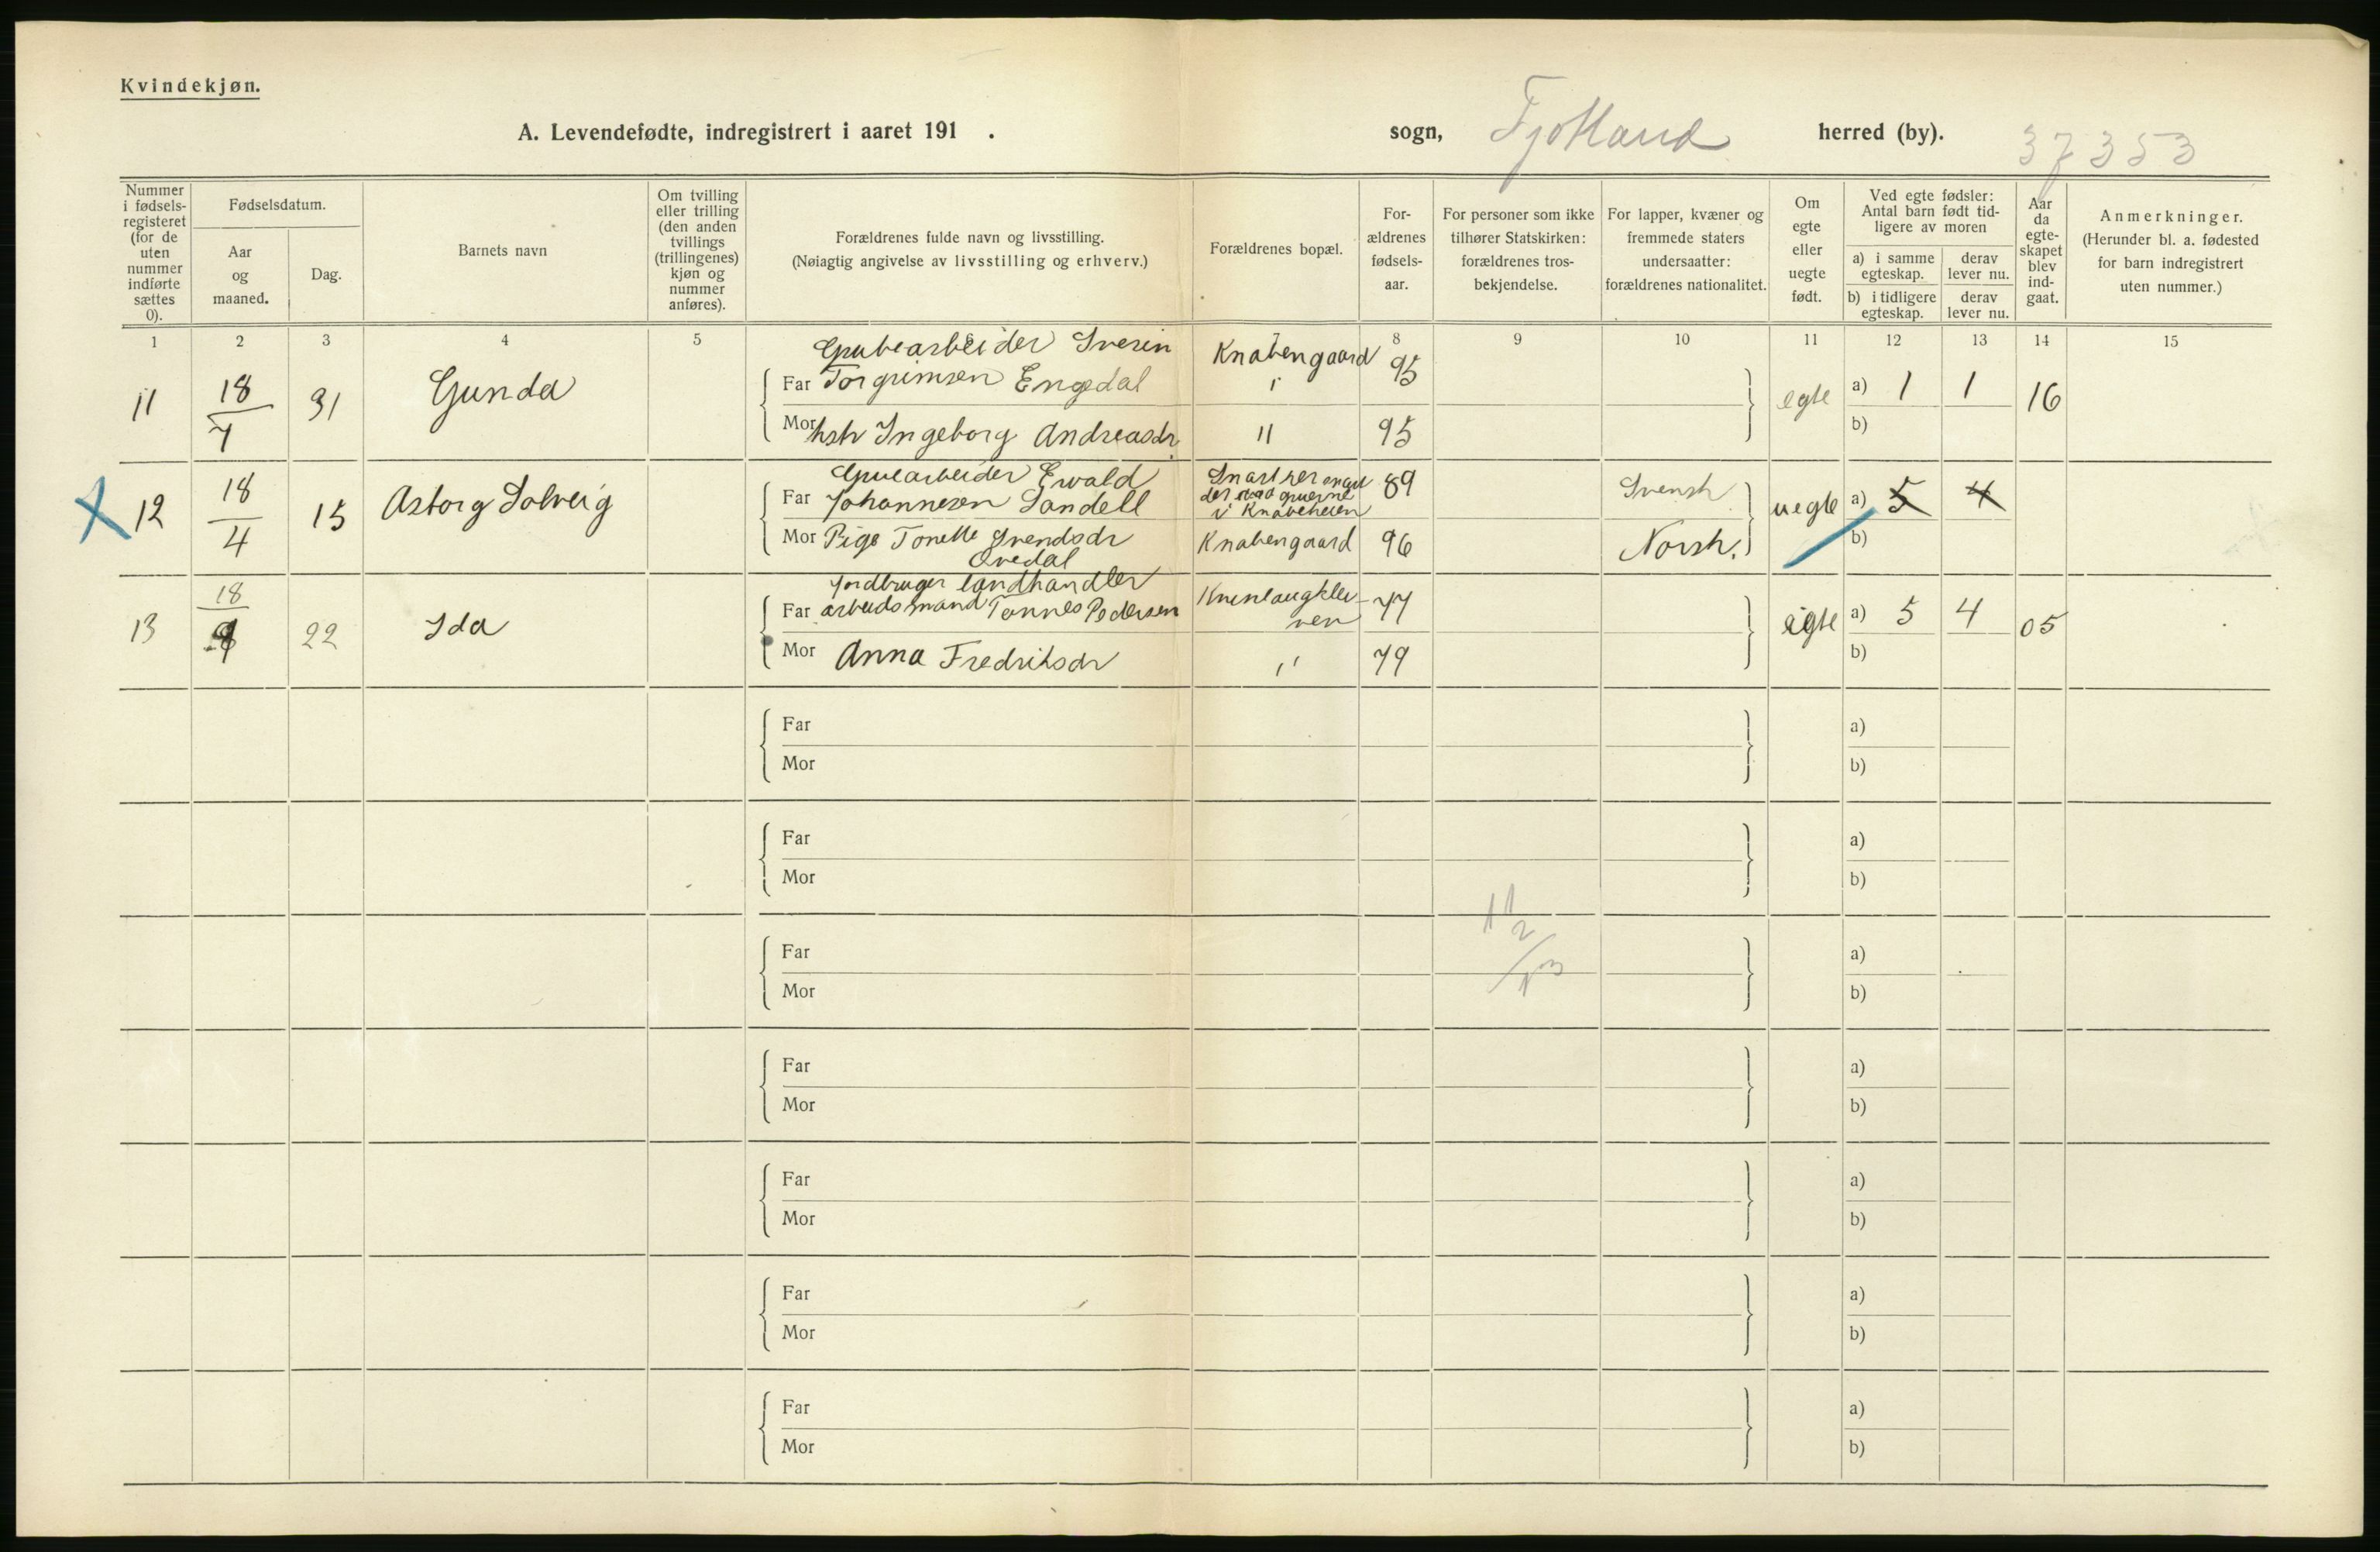 Kvindekjøn.
A. Levendefødte, indregistrert i aaret 191 .
sogn, Fjotland herred (by). 37353
Nummer i fødsels-registeret (for de uten nummer indførte sættes 0).
Fødselsdatum.
Aar og maaned.
Dag.
Barnets navn
Om tvilling eller trilling (den anden tvillings (trillingenes) kjøn og nummer anføres).
Forældrenes fulde navn og livsstilling.
(Nøiagtig angivelse av livsstilling og erhverv.)
Forældrenes bopæl.
For-ældrenes fødsels-aar.
For personer som ikke tilhører Statskirken: forældrenes tros-bekjendelse.
For lapper, kvæner og fremmede staters undersaatter: forældrenes nationalitet.
Om egte eller uegte født.
Ved egte fødsler: Antal barn født tid-ligere av moren
a) i samme egteskap.
derav lever nu.
b) i tidligere egteskap.
derav lever nu.
Aar da egte-skapet blev ind-gaat.
Anmerkninger.
(Herunder bl. a. fødested for barn indregistrert uten nummer.)
1 2 3 4 5 6 7 8 9 10 11 12 13 14 15
11 18/7 31 Gunda
Grubearbeider Sverin
Far Torgrimsen Engedal Knabengaard 95
Mor hstr Ingeborg Andreasdr " 95
egte a) 1 1 16
b)
12 18/4 15 Asborg Solveig
Gruearbeider Ewald
Far Johannesen Sandell
gruerne
i Knabeheien 89 Svensk
Mor Pige Tonette Svendsdr
Ovedal Knabengaard 96 Norsk.
uegte a) 5 4
b)
13 18/9 22 Ida
Jordbruger landhandler
Far arbeidsmand Tønnes Pedersen 77
Mor Anna Fredriksdr " 79
egte a) 5 4 05
b)
Far a)
Mor b)
Far a)
Mor b)
Far a)
Mor b)
Far a)
Mor b)
Far a)
Mor b)
Far a)
Mor b)
Far a)
Mor b)